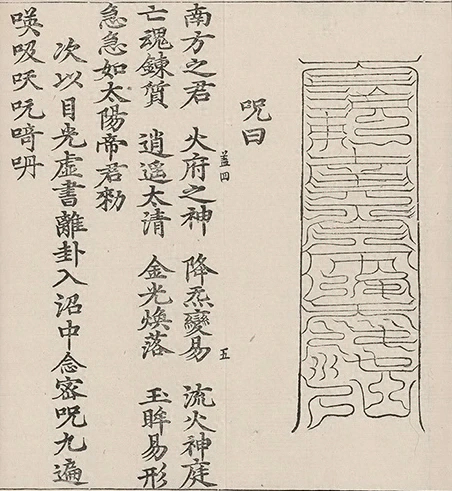 呪曰
南方之君 火府之神 降炁變易 流火神庭
蓋四 五
亡魂鍊質 逍遥太清 金光煥落 玉眸易形
急急如太陽帝君勑
次以目光虛書離卦入沼中念密呪九遍
唊吸吷吭㗁